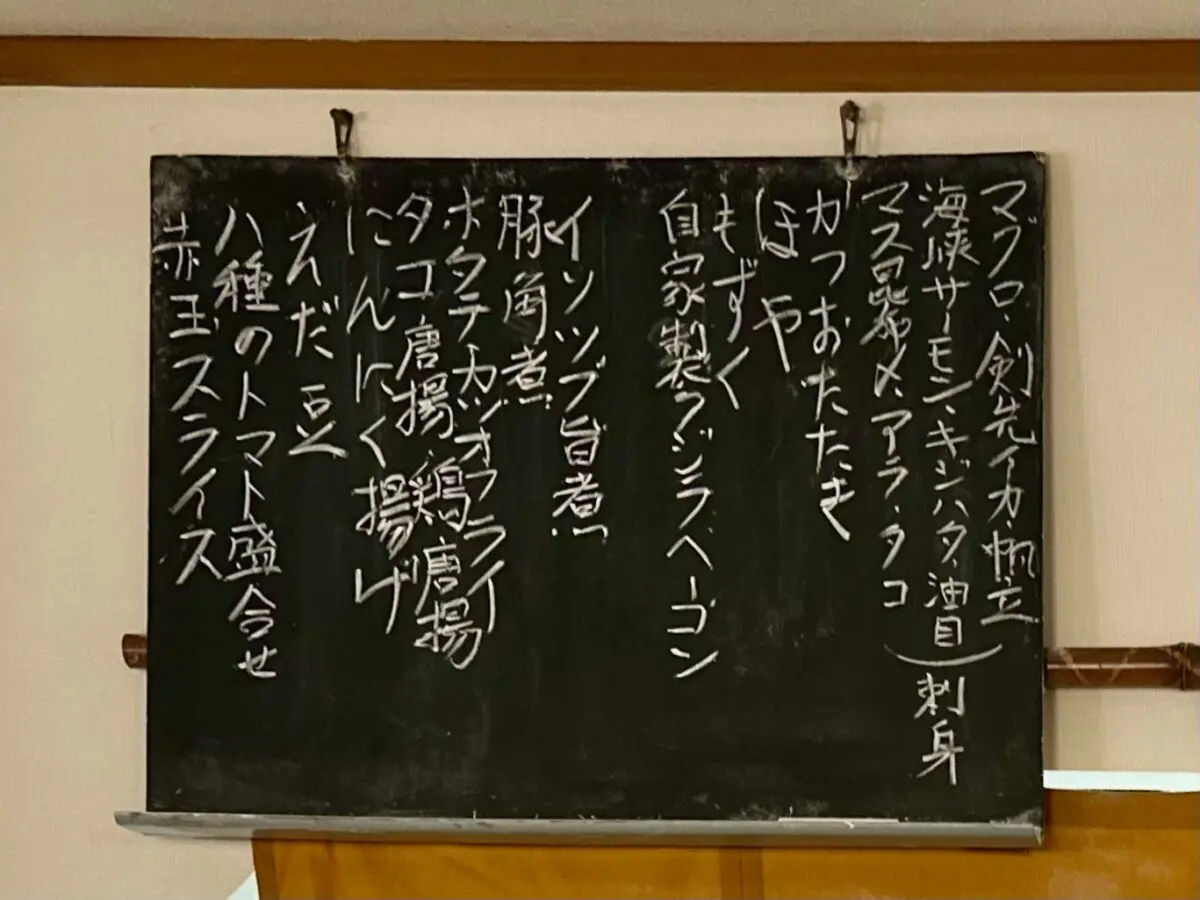 マグロ、剣先イカ・帆立
海峡サーモン・キジハタ・油目
マス昆布〆、アイラ・タコ
刺身
かつおたたき
ほや
もずく
自家製クジラベーコン
イソツブ旨煮
豚角煮
ホタテカツオフライ
タコ唐揚 鶏唐揚
にんにく揚げ
えだ豆
八種のトマト盛合せ
赤玉スライス